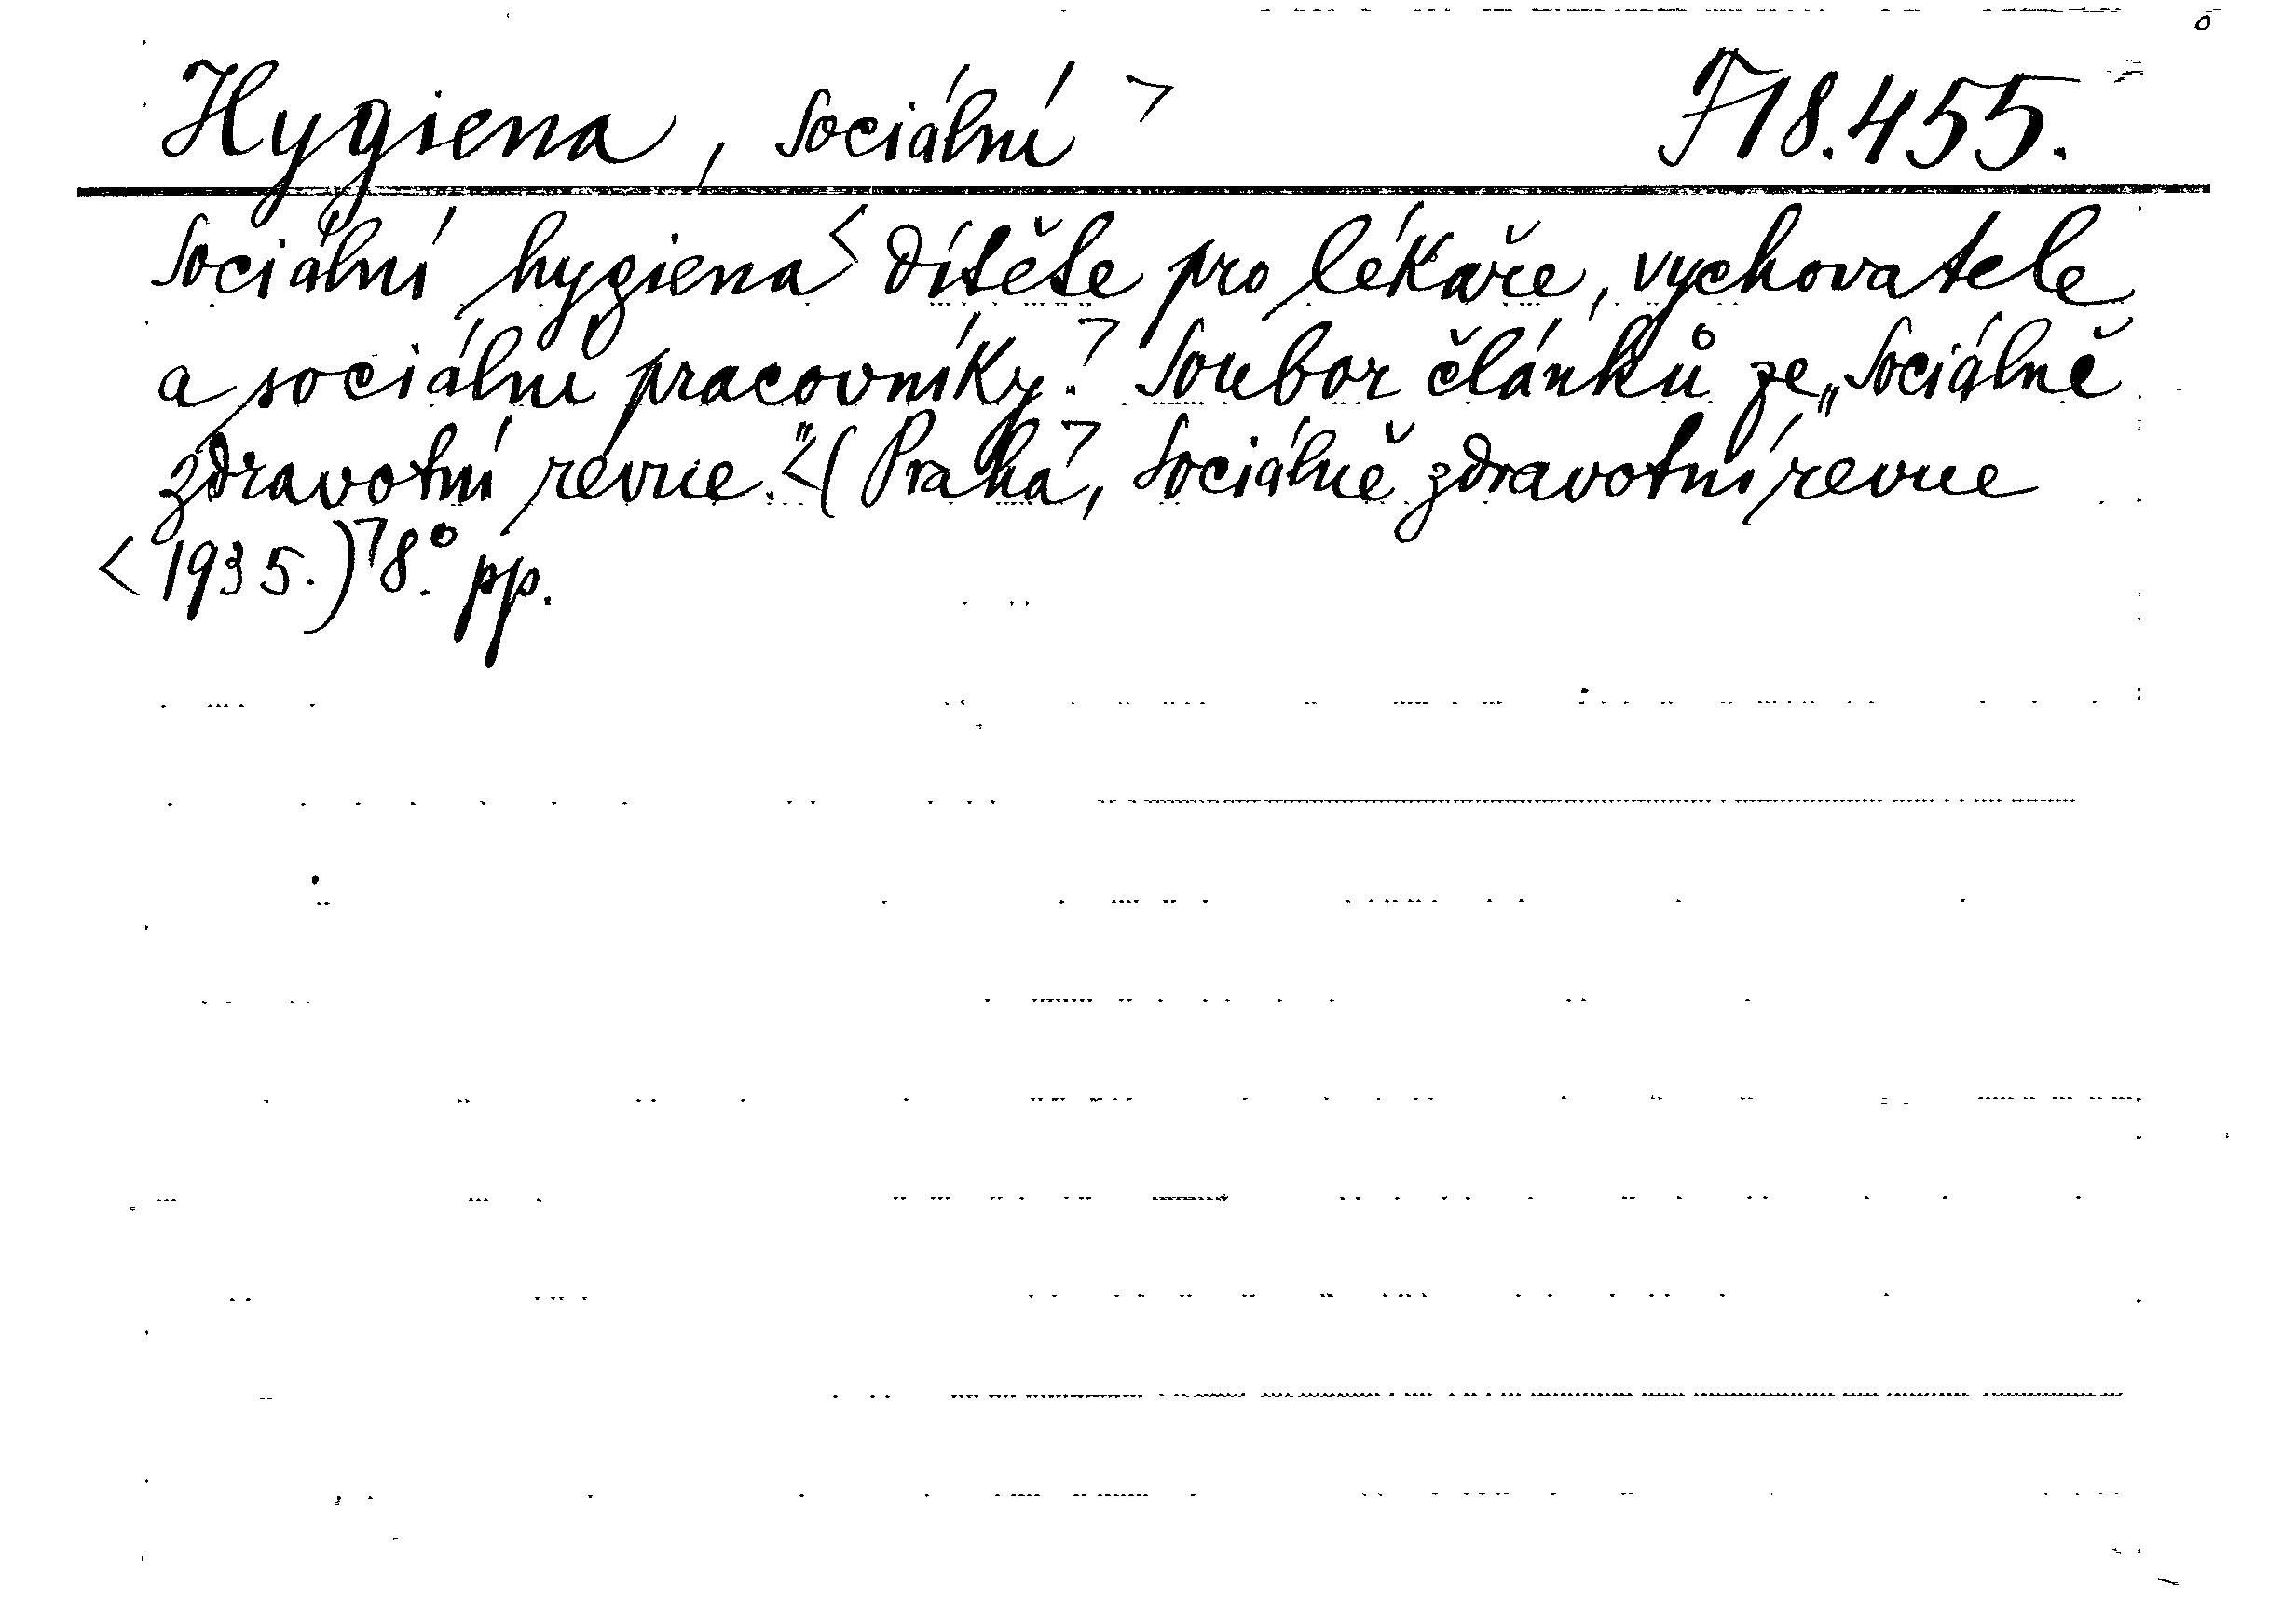 Hygiena, sociální > F 18.455.
Sociální hygiena < dítěte pro lékaře, vychovatele
a sociální pracovníky. > Soubor článků ze „Sociálně
zdravotní revue." < (Praha >, Sociálně zdravotní revue
< 1935.) > 8°. pp.